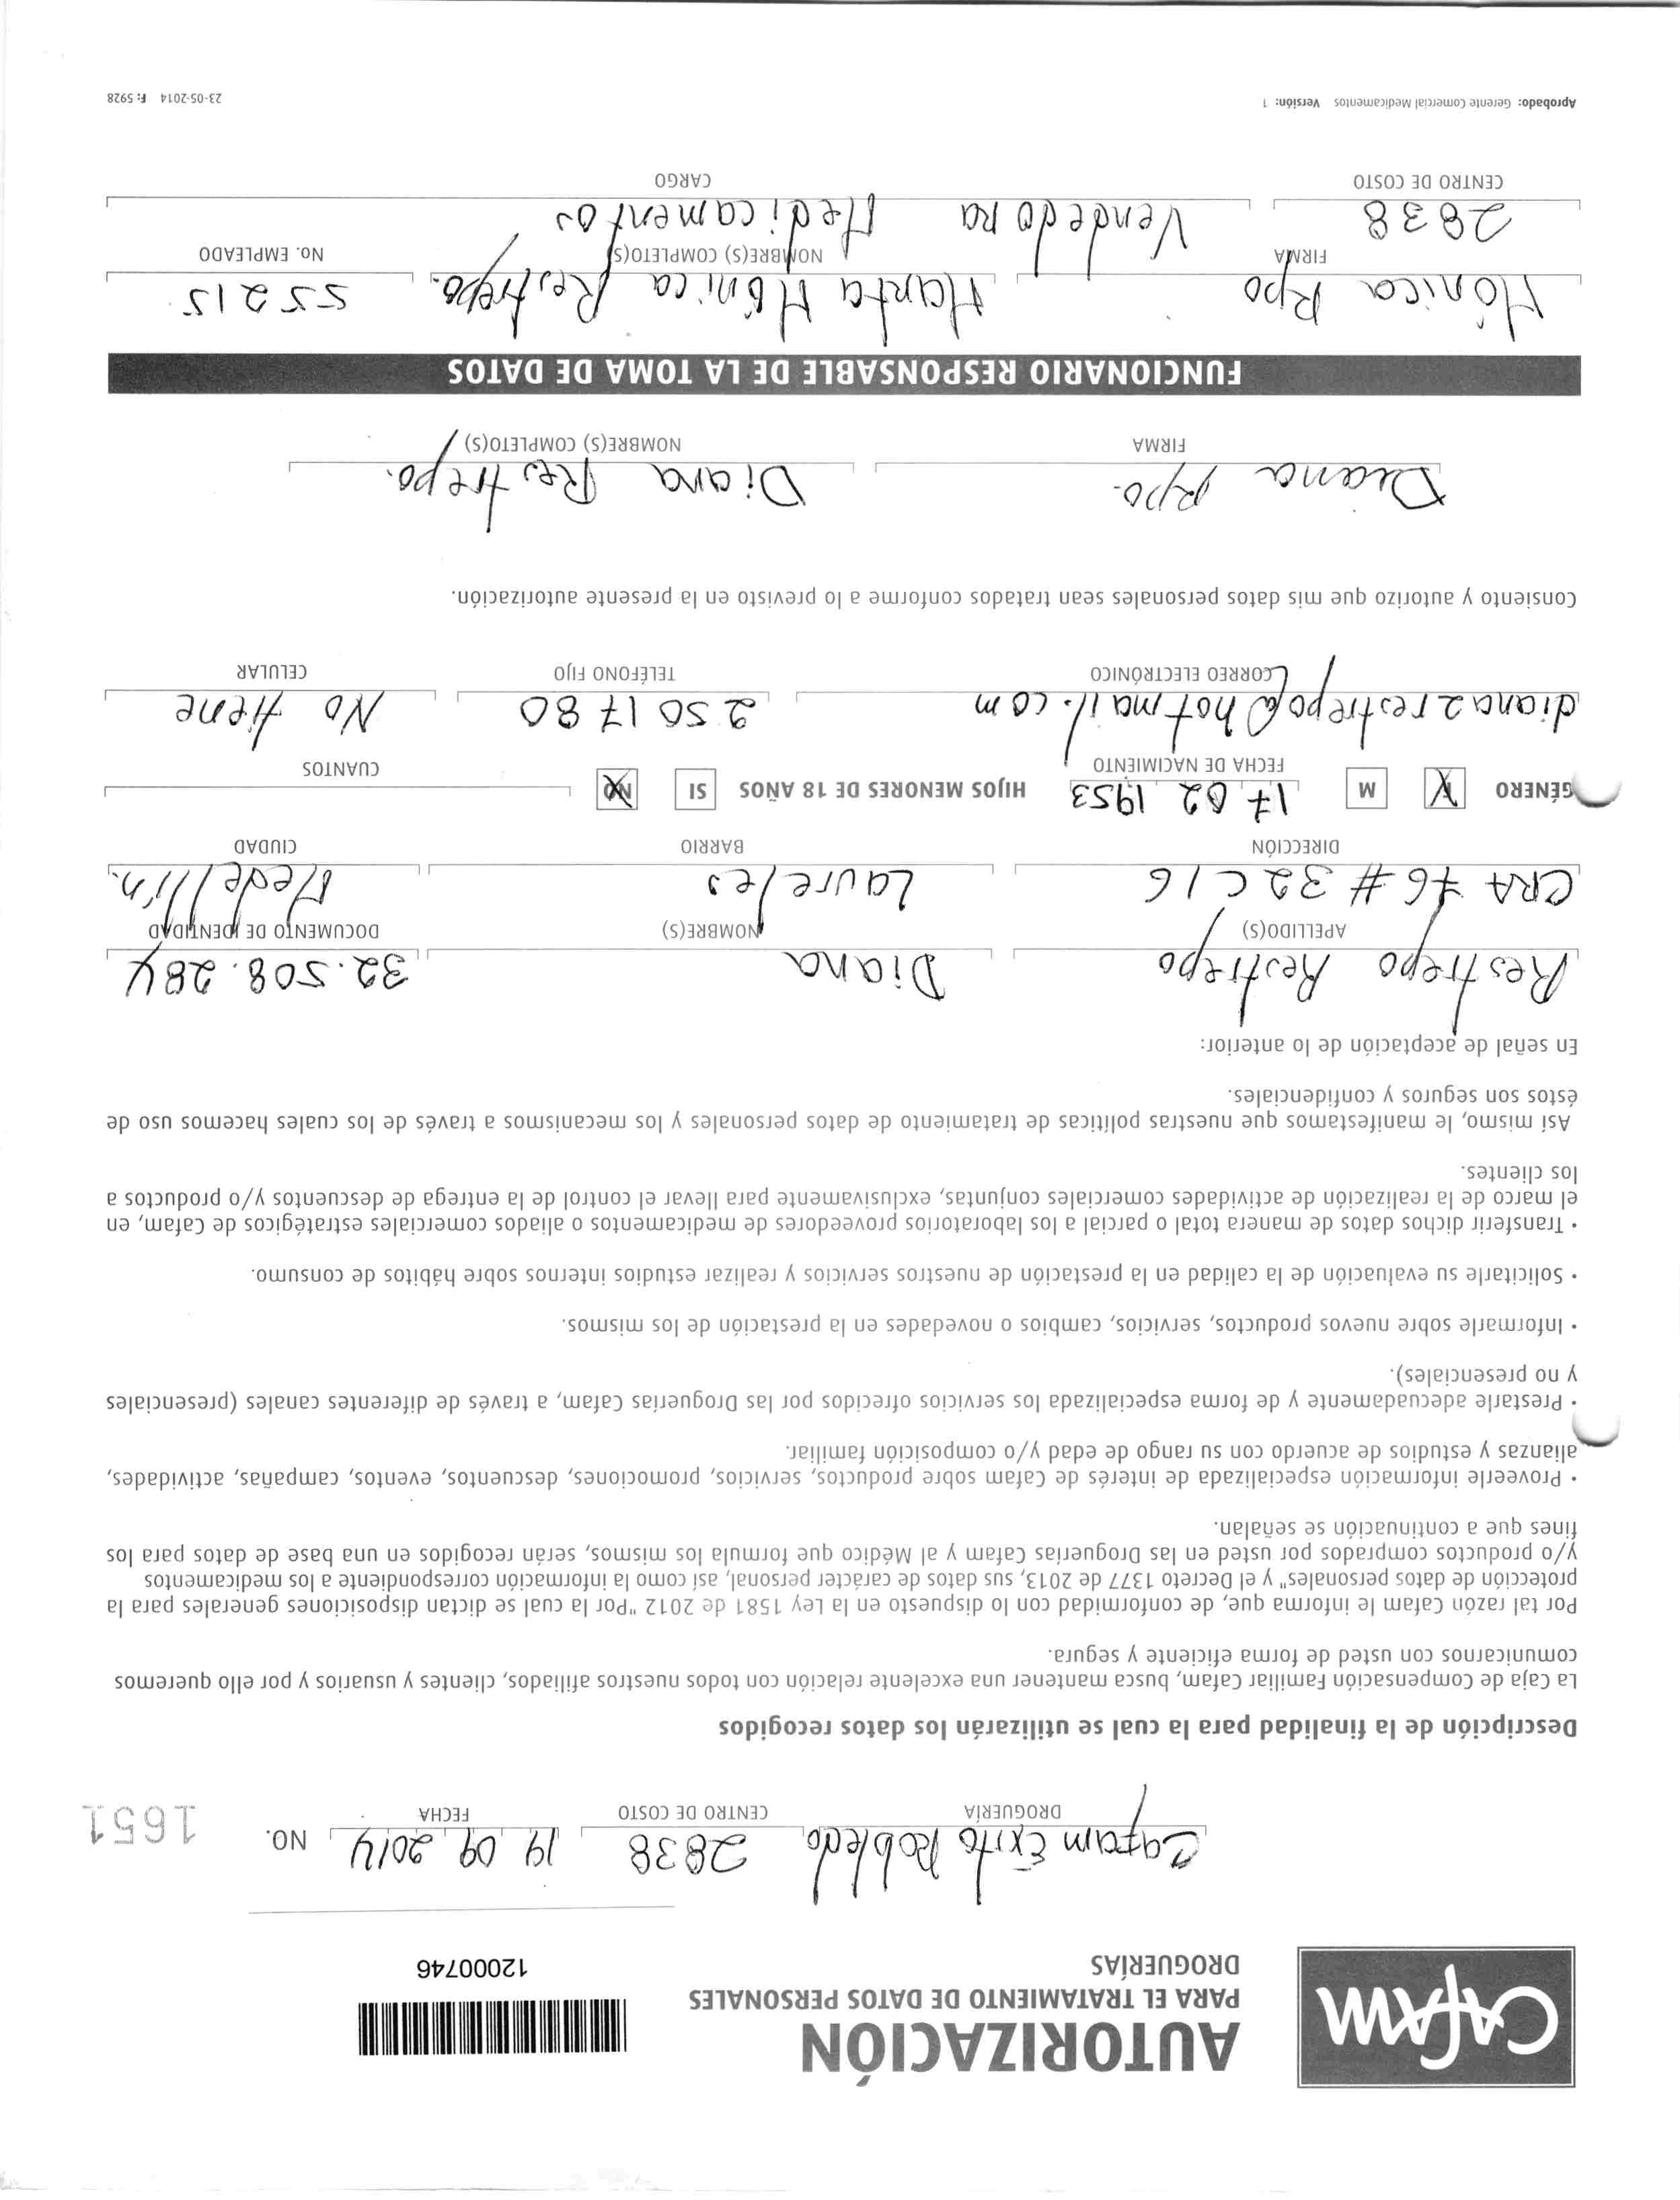 CAFAM
AUTORIZACIÓN
PARA EL TRATAMIENTO DE DATOS PERSONALES
DROGUERÍAS
12000746
Cafam Exito Robledo 2838 19 09 2014 NO. 1651
DROGUERÍA CENTRO DE COSTO FECHA
Descripción de la finalidad para la cual se utilizarán los datos recogidos
La Caja de Compensación Familiar Cafam, busca mantener una excelente relación con todos nuestros afiliados, clientes y usuarios y por ello queremos
comunicarnos con usted de forma eficiente y segura.
Por tal razón Cafam le informa que, de conformidad con lo dispuesto en la Ley 1581 de 2012 "Por la cual se dictan disposiciones generales para la
protección de datos personales" y el Decreto 1377 de 2013, sus datos de carácter personal, así como la información correspondiente a los medicamentos
y/o productos comprados por usted en las Droguerías Cafam y al Médico que formula los mismos, serán recogidos en una base de datos para los
fines que a continuación se señalan.
• Proveerle información especializada de interés de Cafam sobre productos, servicios, promociones, descuentos, eventos, campañas, actividades,
alianzas y estudios de acuerdo con su rango de edad y/o composición familiar.
• Prestarle adecuadamente y de forma especializada los servicios ofrecidos por las Droguerías Cafam, a través de diferentes canales (presenciales
y no presenciales).
• Informarle sobre nuevos productos, servicios, cambios o novedades en la prestación de los mismos.
• Solicitarle su evaluación de la calidad en la prestación de nuestros servicios y realizar estudios internos sobre hábitos de consumo.
• Transferir dichos datos de manera total o parcial a los laboratorios proveedores de medicamentos o aliados comerciales estratégicos de Cafam, en
el marco de la realización de actividades comerciales conjuntas, exclusivamente para llevar el control de la entrega de descuentos y/o productos a
los clientes.
Así mismo, le manifestamos que nuestras políticas de tratamiento de datos personales y los mecanismos a través de los cuales hacemos uso de
éstos son seguros y confidenciales.
En señal de aceptación de lo anterior:
Restrepo Restrepo Diana 32.508.284
APELLIDO(S) NOMBRE(S) DOCUMENTO DE IDENTIDAD
CRA 76 # 32 C 16 Laureles Medellín.
DIRECCIÓN BARRIO CIUDAD
GÉNERO X M 17 02 1953 HIJOS MENORES DE 18 AÑOS SI NO X
FECHA DE NACIMIENTO CUANTOS
diana2restrepo@hotmail.com 2501780 No tiene
CORREO ELECTRÓNICO TELÉFONO FIJO CELULAR
Consiento y autorizo que mis datos personales sean tratados conforme a lo previsto en la presente autorización.
Diana Rpo. Diana Restrepo.
FIRMA NOMBRE(S) COMPLETO(S)
FUNCIONARIO RESPONSABLE DE LA TOMA DE DATOS
Mónica Rpo Marta Mónica Restrepo. 55215
FIRMA NOMBRE(S) COMPLETO(S) No. EMPLEADO
2838 Vendedora Medicamentos
CENTRO DE COSTO CARGO
Aprobado: Gerente Comercial Medicamentos Versión: 1 23-05-2014 F: 5928